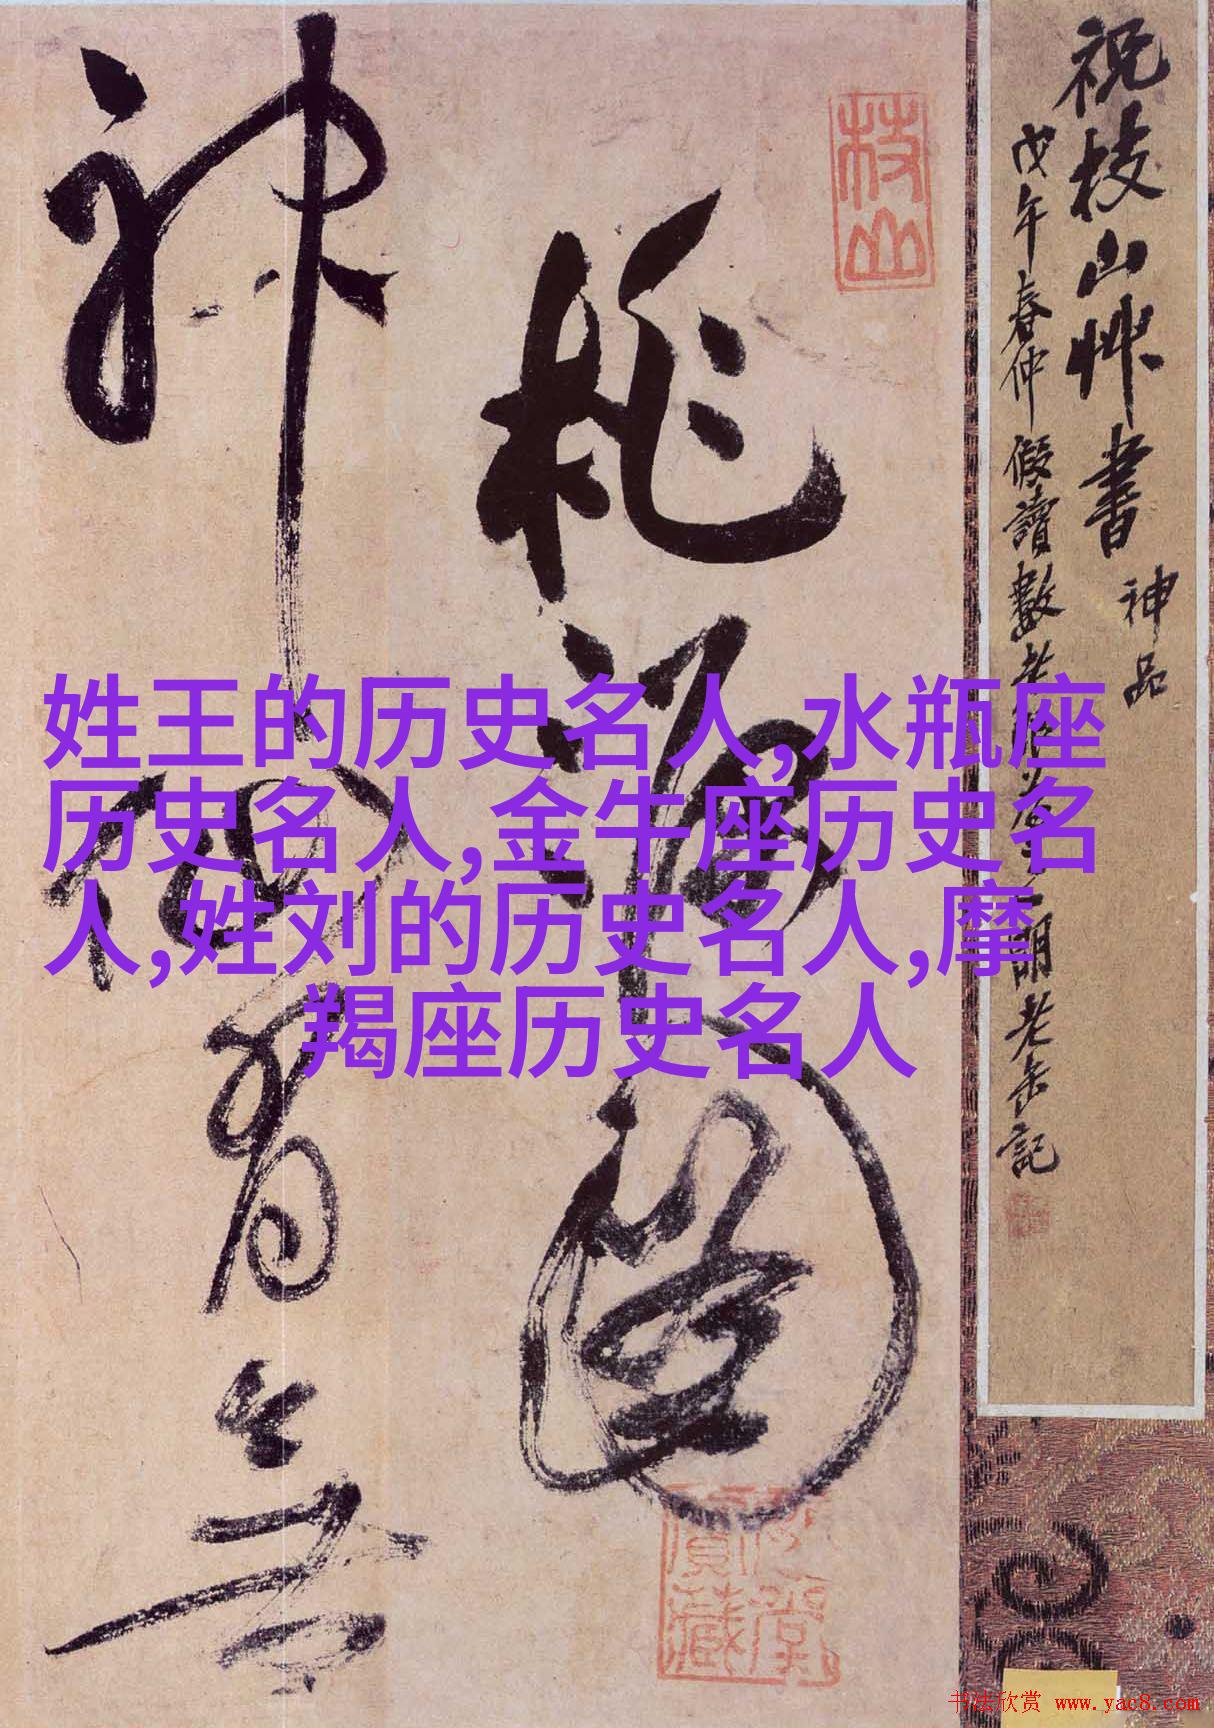 祝枝山艸書 神品
戊午春仲假讀數
朗老缶記
枝山
桃源圖
神仙有無
姓王的历史名人,水瓶座
历史名人,金牛座历史名
人,姓刘的历史名人,摩
羯座历史名人
书法欣赏 www.yac8.com